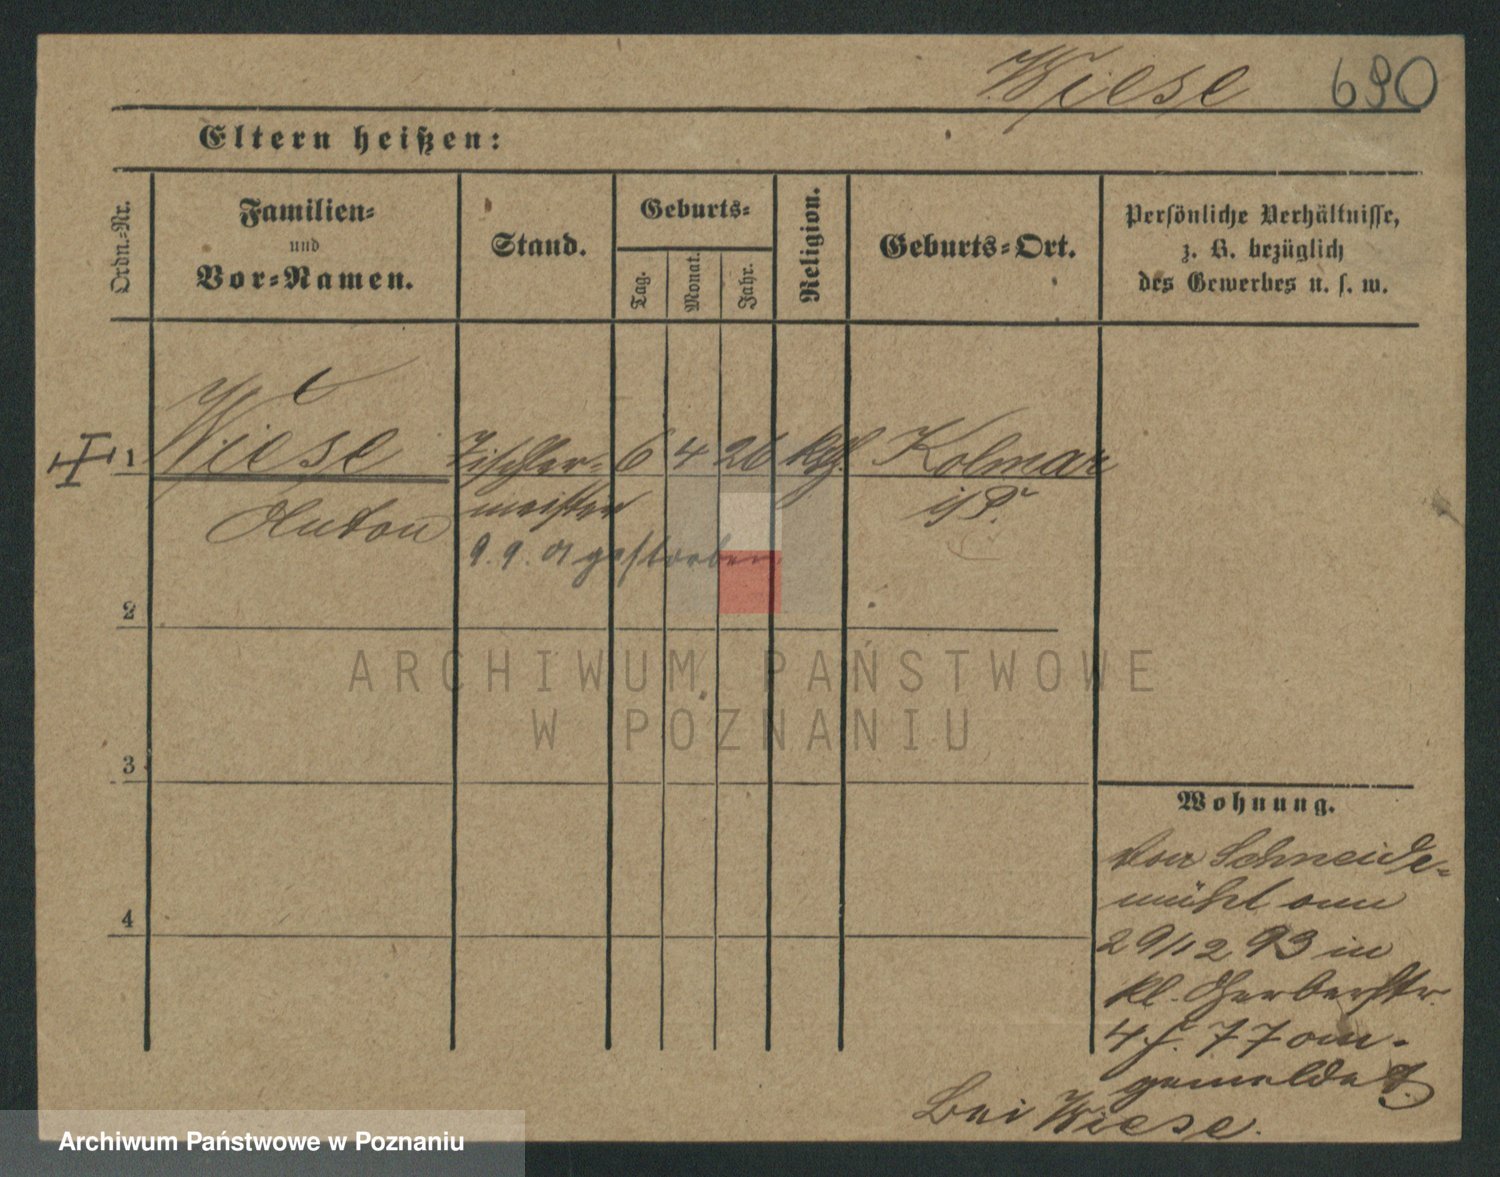 Wiese 690
Eltern heißen:
Ordn.-Nr.
Familien-
und
Vor-Namen.
Stand.
Geburts-
Tag.
Monat.
Jahr.
Religion.
Geburts-Ort.
Persönliche Verhältnisse,
z. B. bezüglich
des Gewerbes u. s. w.
1 Wiese Tischler- 6 4 26 kth. Kolmar
Anton meister i/P.
9. 9. 01 gestorben
2
ARCHIWUM PAŃSTWOWE
W POZNANIU
3
Wohnung.
Von Schneide-
mühl am
4
29/12 93 in
kl. Gerberstr.
4 f. 77 an-
gemeldet.
Bei Wiese.
Archiwum Państwowe w Poznaniu